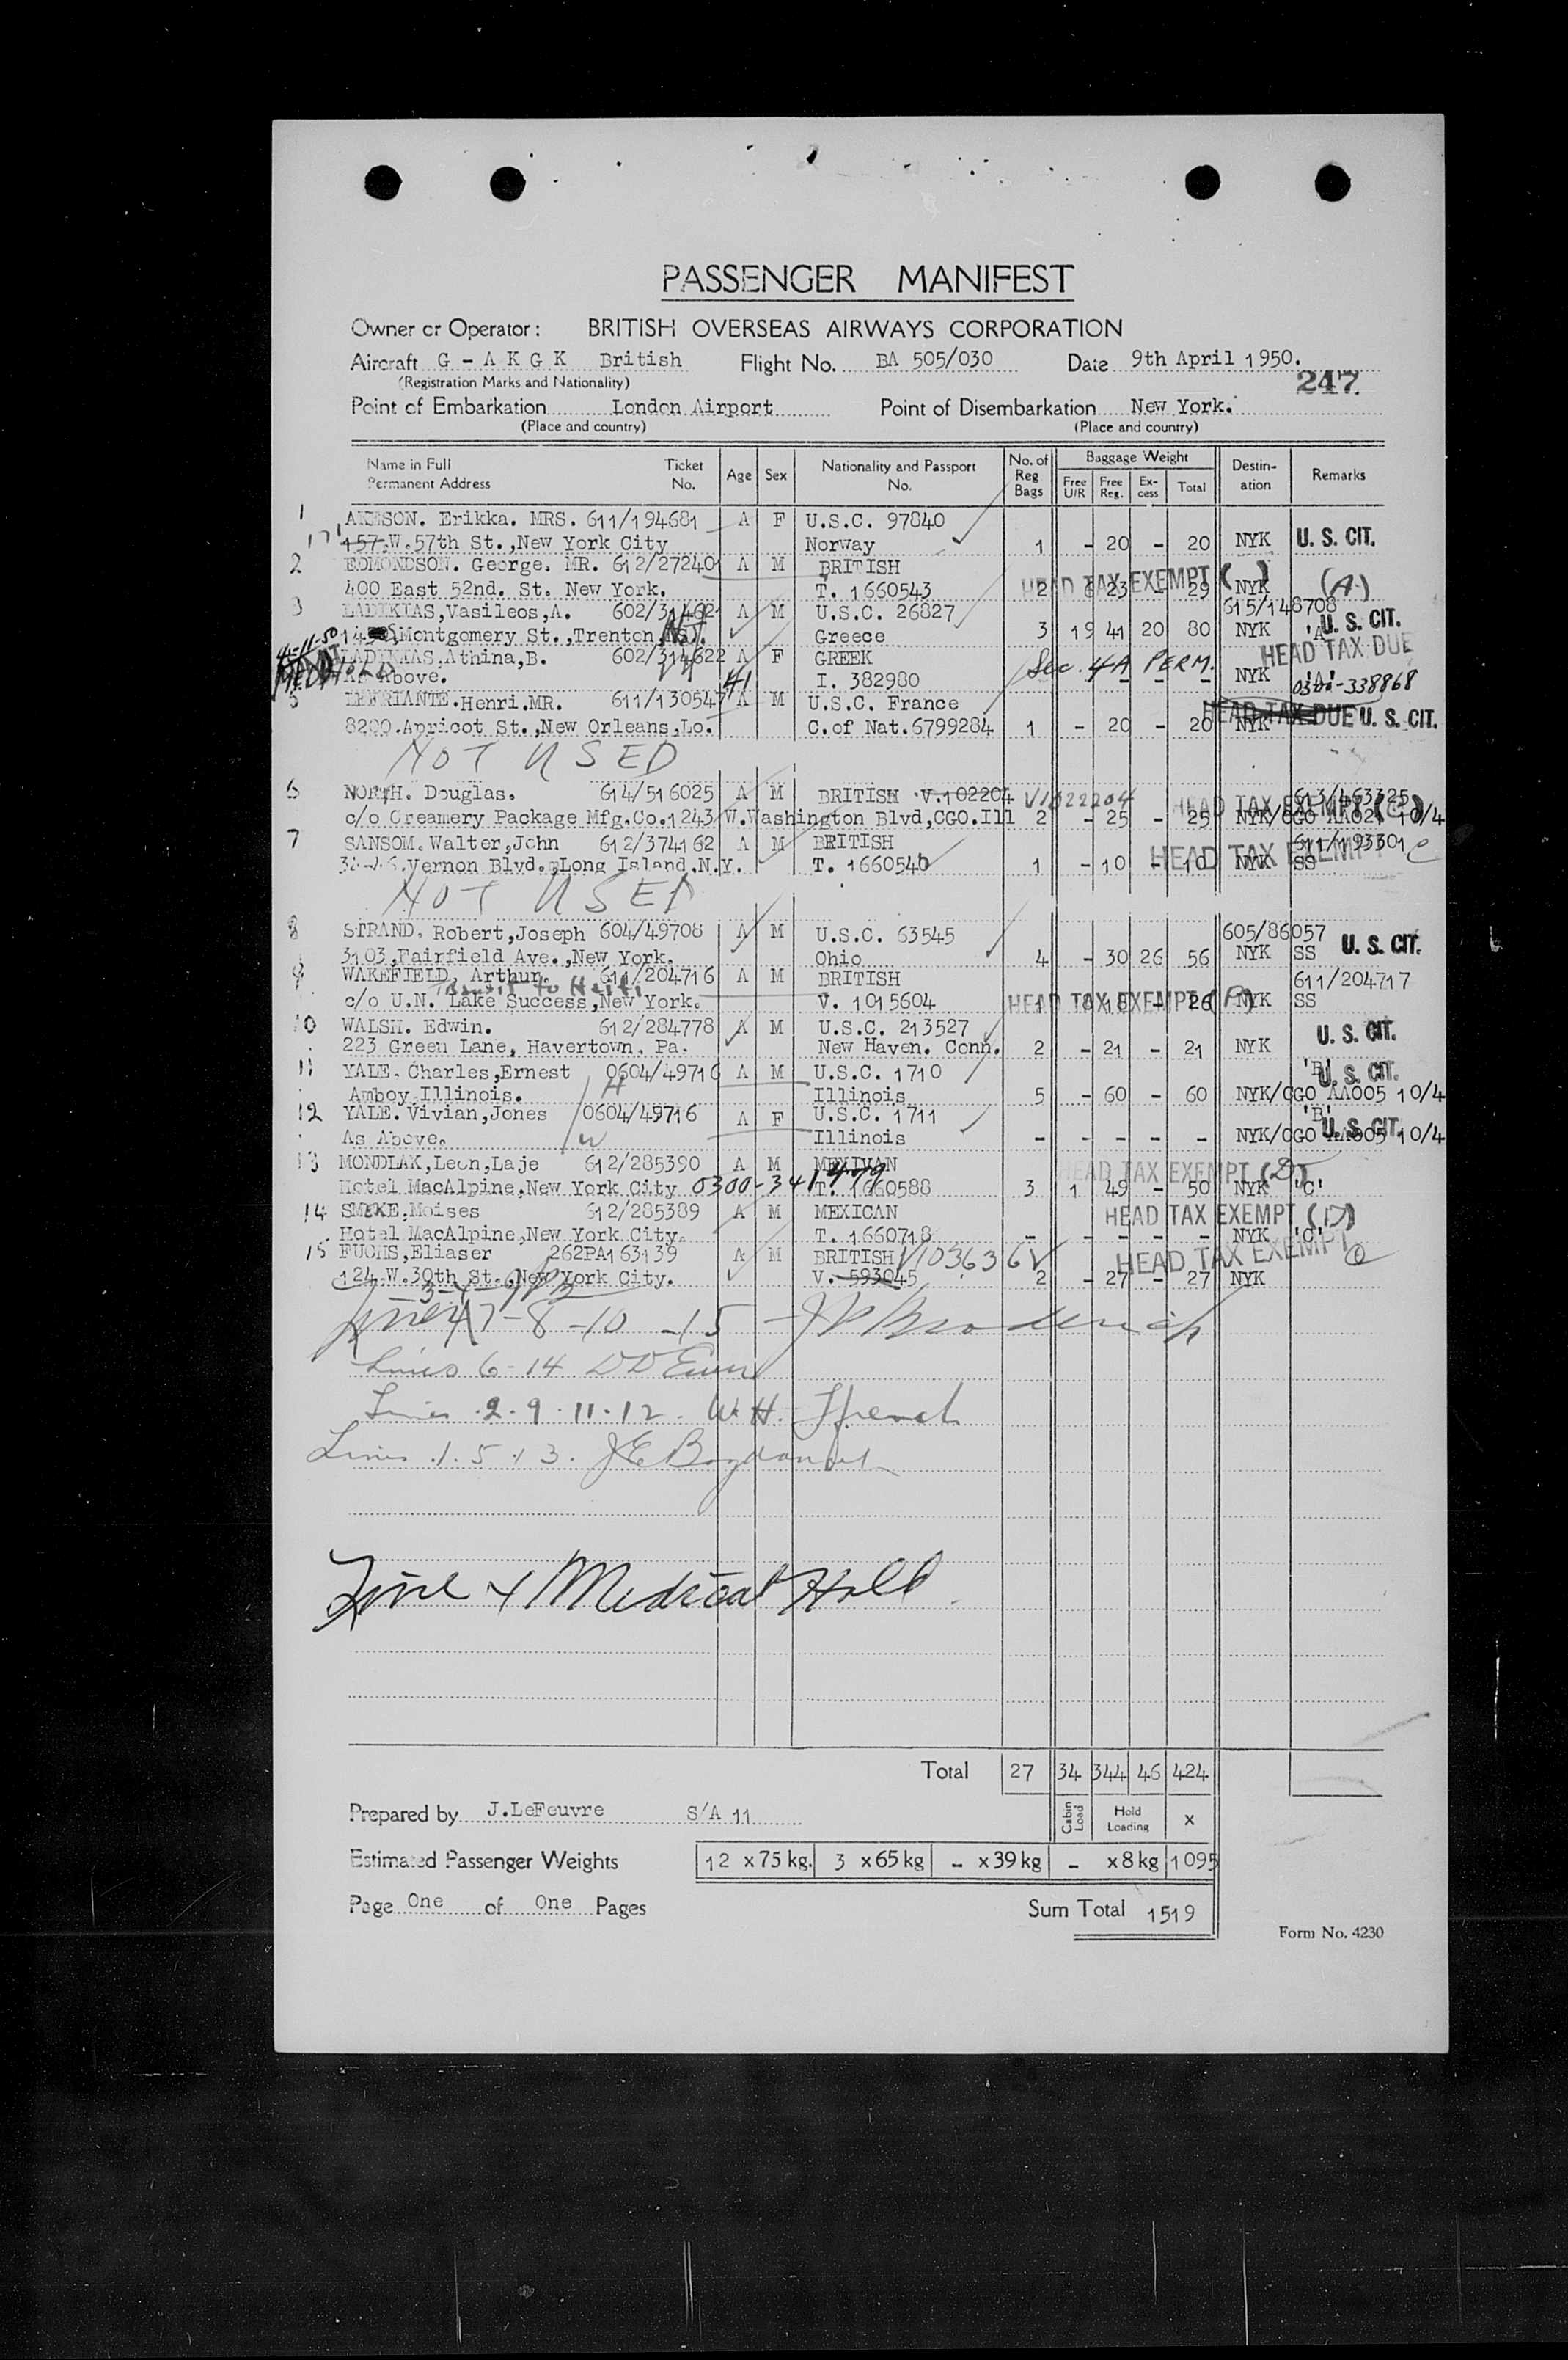 PASSENGER MANIFEST
Owner or Operator: BRITISH OVERSEAS AIRWAYS CORPORATION
Aircraft G - A K G K British Flight No. BA 505/030 Date 9th April 1950.
(Registration Marks and Nationality)
247
Point of Embarkation London Airport Point of Disembarkation New York.
(Place and country) (Place and country)
Name in Full Permanent Address Ticket No. Age Sex Nationality and Passport No. No. of Reg Bags Baggage Weight Free U/R Free Reg. Ex-cess Total Destin-ation Remarks
1 Erikka. MRS. 611/194681 A F U.S.C. 97840
157.W.57th St.,New York City Norway 1 - 20 - 20 NYK U. S. CIT.
2 EDMONDSON. George. MR. 612/27240 A M BRITISH
400 East 52nd. St. New York. T. 1660543 2 6 23 - 29 NYK HEAD TAX EXEMPT (A)
3 LADIKTAS,Vasileos,A. 602/314621 A M U.S.C. 26827 615/148708
Montgomery St.,Trenton, N.J. Greece 3 19 41 20 80 NYK 'A' U. S. CIT.
Athina,B. 602/314622 A F GREEK Sec. 4A PERM. HEAD TAX DUE
4-11-50
As Above. 41 I. 382980 - - - - NYK 'A' 0300-338868
5 LEFRIANTE.Henri.MR. 611/130547 A M U.S.C. France
8200.Apricot St.,New Orleans,Lo. C.of Nat.6799284 1 - 20 - 20 NYK HEAD TAX DUE U. S. CIT.
NOT USED
6 NORTH. Douglas. 614/516025 A M BRITISH V.102204 V1022204 613/463325
c/o Creamery Package Mfg.Co.1243 W.Washington Blvd,CGO.Ill 2 - 25 - 25 NYK/CGO AA021 10/4 HEAD TAX EXEMPT (C)
7 SANSOM. Walter,John 612/374162 A M BRITISH 611/193301
34-46.Vernon Blvd.,Long Island.N.Y. T. 1660540 1 - 10 - 10 NYK SS HEAD TAX EXEMPT C
NOT USED
8 STRAND. Robert,Joseph 604/49708 A M U.S.C. 63545 605/86057
3103,Fairfield Ave.,New York. Ohio 4 - 30 26 56 NYK SS U. S. CIT.
9 WAKEFIELD. Arthur. 611/204716 A M BRITISH 611/204717
Transit to Haiti
c/o U.N. Lake Success,New York. V. 1015604 1 8 18 - 26 NYK SS HEAD TAX EXEMPT (B)
10 WALSH. Edwin. 612/284778 A M U.S.C. 213527 U. S. CIT.
223 Green Lane, Havertown. Pa. New Haven. Conn. 2 - 21 - 21 NYK
11 YALE. Charles,Ernest 0604/49716 A M U.S.C. 1710 'B' U. S. CIT.
Amboy Illinois. H Illinois 5 - 60 - 60 NYK/CGO AA005 10/4
12 YALE. Vivian,Jones 0604/49716 A F U.S.C. 1711 'B'
As Above. W Illinois - - - - - NYK/CGO AA005 10/4 U. S. CIT.
13 MONDLAK,Leon,Laje 612/285390 A M MEXIVAN HEAD TAX EXEMPT (D)
Hotel MacAlpine,New York City 0300-341479 T. 1660588 3 1 49 - 50 NYK 'C'
14 SMEKE,Moises 612/285389 A M MEXICAN HEAD TAX EXEMPT (D)
Hotel MacAlpine,New York City. T. 1660718 - - - - - NYK 'C'
15 FUCHS,Eliaser 262PA163139 A M BRITISH V103636V HEAD TAX EXEMPT C
124.W.30th St.,New York City. V. 593045 2 - 27 - 27 NYK
3-4
7-8-10-15 Broderick
Lines 6-14
Lines 2.9.11.12. W.H. Ffrench
Lines 1.5.13.
Line 4 Medical Hold
Total 27 34 344 46 424
Prepared by J.LeFeuvre S/A 11 Cabin Load Hold Loading x
Estimated Passenger Weights 12 x75 kg. 3 x65 kg - x39 kg - x8 kg 1095
Page One of One Pages Sum Total 1519
Form No. 4230